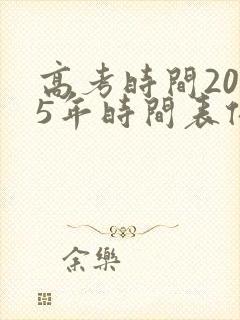 高考時間20
5年時間表
余樂